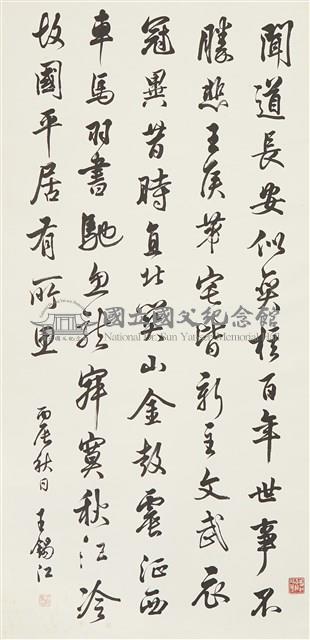 聞道長安似奕棋百年世事不
勝悲王侯苐宅皆新主文武衣
冠異昔時直北關山金鼓震征西
車馬羽書馳魚龍寂寞秋江冷
故國平居有所思
丙辰秋日 王錫江
國立國父紀念館
National Dr. Sun Yat-sen Memorial Hall